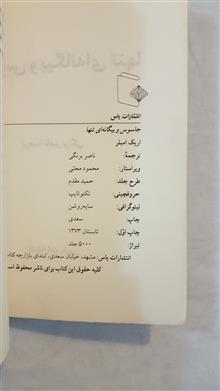 انتشارات یاس
جاسوس و بیگانه‌ای تنها
اریک امبلر
ترجمهٔ: ناصر برنگی
ویراستار: محمود محبّی
طرح جلد: حمید مقدم
حروفچینی: تکنوتایپ
لیتوگرافی: سایه‌روشن
چاپ: سعدی
چاپ اوّل: تابستان ۱۳۷۳
تیراژ: ۵۰۰۰ جلد
انتشارات یاس: مشهد، خیابان سعدی، ابتدای بازارچه کتاب
کلیه حقوق این کتاب برای ناشر محفوظ است